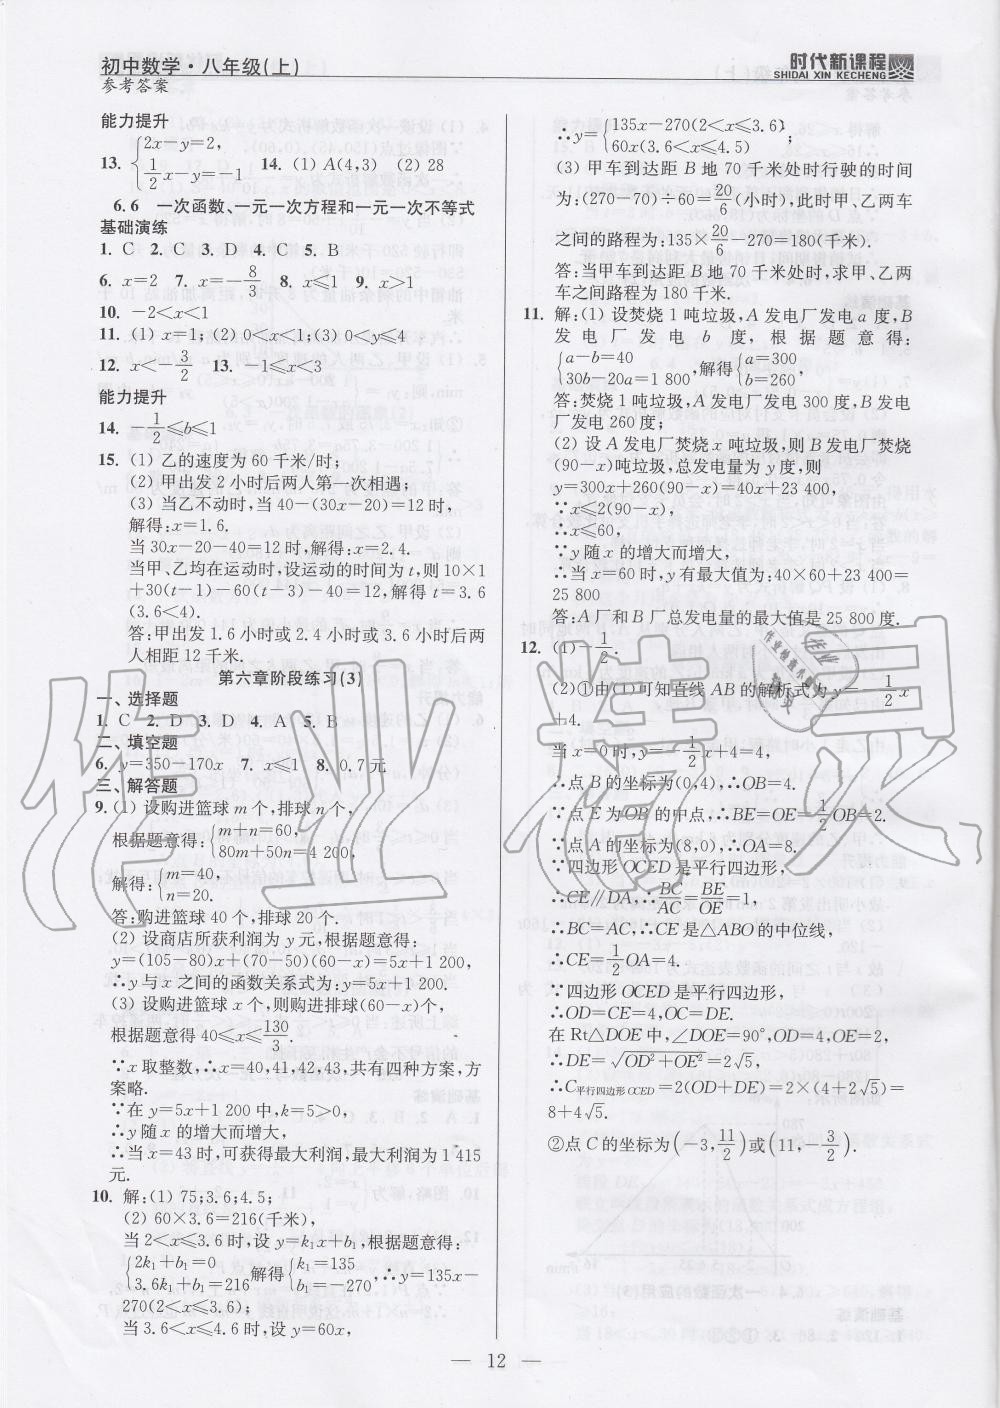 初中数学·八年级(上)
参考答案
时代新课程
SHIDAI XIN KECHENG
能力提升
13. {2x-y=2,
1/2 x-y=-1  14. (1) A(4,3)  (2) 28
6.6 一次函数、一元一次方程和一元一次不等式
基础演练
1. C  2. C  3. D  4. C  5. B
6. x=2  7. x=-8/3  8. x≤1  9. x>1
10. -2<x<1
11. (1) x=1; (2) 0<x<1;(3) 0<y≤4
12. x<-3/2  13. -1≤x<3
能力提升
14. -1/2≤b≤1
15. (1) 乙的速度为 60 千米/时;
(2) 甲出发 2 小时后两人第一次相遇;
(3) 当乙不动时,当 40-(30x-20)=12 时,
解得:x=1.6.
当 30x-20-40=12 时,解得:x=2.4.
当甲、乙均在运动时,设运动的时间为 t,则 10×1
+30(t-1)-60(t-3)-40=12,解得 t=3.6
(3.6<4).
答:甲出发 1.6 小时或 2.4 小时或 3.6 小时后两
人相距 12 千米.
第六章阶段练习(3)
一、选择题
1. C  2. D  3. D  4. A  5. B
二、填空题
6. y=350-170x  7. x≤1  8. 0.7 元
三、解答题
9. (1) 设购进篮球 m 个,排球 n 个,
根据题意得:{m+n=60,
80m+50n=4 200,
解得:{m=40,
n=20.
答:购进篮球 40 个,排球 20 个.
(2) 设商店所获利润为 y 元,根据题意得:
y=(105-80)x+(70-50)(60-x)=5x+1 200,
∴y 与 x 之间的函数关系式为:y=5x+1 200.
(3) 设购进篮球 x 个,则购进排球(60-x)个,
根据题意得 40≤x≤130/3.
∵x 取整数,∴x=40,41,42,43,共有四种方案,方
案略.
∵在 y=5x+1 200 中,k=5>0,
∴y 随 x 的增大而增大,
∴当 x=43 时,可获得最大利润,最大利润为 1 415
元.
10. 解:(1) 75;3.6;4.5;
(2) 60×3.6=216(千米),
当 2<x≤3.6 时,设 y=k₁x+b₁,根据题意得:
{2k₁+b₁=0
3.6k₁+b₁=216 解得{k₁=135
b₁=-270,∴y=135x-
270(2<x≤3.6);
当 3.6<x≤4.6 时,设 y=60x,
∴y={135x-270(2<x≤3.6)
60x(3.6<x≤4.5);
(3) 甲车到达距 B 地 70 千米处时行驶的时间
为:(270-70)÷60=20/6(小时),此时甲、乙两车
之间的路程为:135×20/6-270=180(千米).
答:当甲车到达距 B 地 70 千米处时,求甲、乙两
车之间路程为 180 千米.
11. 解:(1) 设焚烧 1 吨垃圾,A 发电厂发电 a 度,B
发电厂发电 b 度,根据题意得:
{a-b=40
30b-20a=1 800,解得{a=300
b=260,
答:焚烧 1 吨垃圾,A 发电厂发电 300 度,B 发电
厂发电 260 度;
(2) 设 A 发电厂焚烧 x 吨垃圾,则 B 发电厂焚烧
(90-x)吨垃圾,总发电量为 y 度,则
y=300x+260(90-x)=40x+23 400,
∵x≤2(90-x),
∴x≤60,
∵y 随 x 的增大而增大,
∴当 x=60 时,y 有最大值为:40×60+23 400=
25 800
答:A 厂和 B 厂总发电量的最大值是 25 800 度.
12. (1)-1/2.
(2)①由(1)可知直线 AB 的解析式为 y=-1/2x
+4.
当 x=0 时,y=-1/2x+4=4,
∴点 B 的坐标为(0,4),∴OB=4.
∵点 E 为 OB 的中点,∴BE=OE=1/2OB=2.
∵点 A 的坐标为(8,0),∴OA=8.
∵四边形 OCED 是平行四边形,
∴CE∥DA,∴BC/AC=BE/OE=1,
∴BC=AC,∴CE 是△ABO的中位线,
∴CE=1/2OA=4.
∵四边形 OCED 是平行四边形,
∴OD=CE=4,OC=DE.
在 Rt△DOE 中,∠DOE=90°,OD=4,OE=2,
∴DE=√(OD²+OE²)=2√5,
∴C平行四边形OCED=2(OD+DE)=2×(4+2√5)=
8+4√5.
②点 C 的坐标为(-3,11/2)或(11,-3/2).
作业精灵
— 12 —